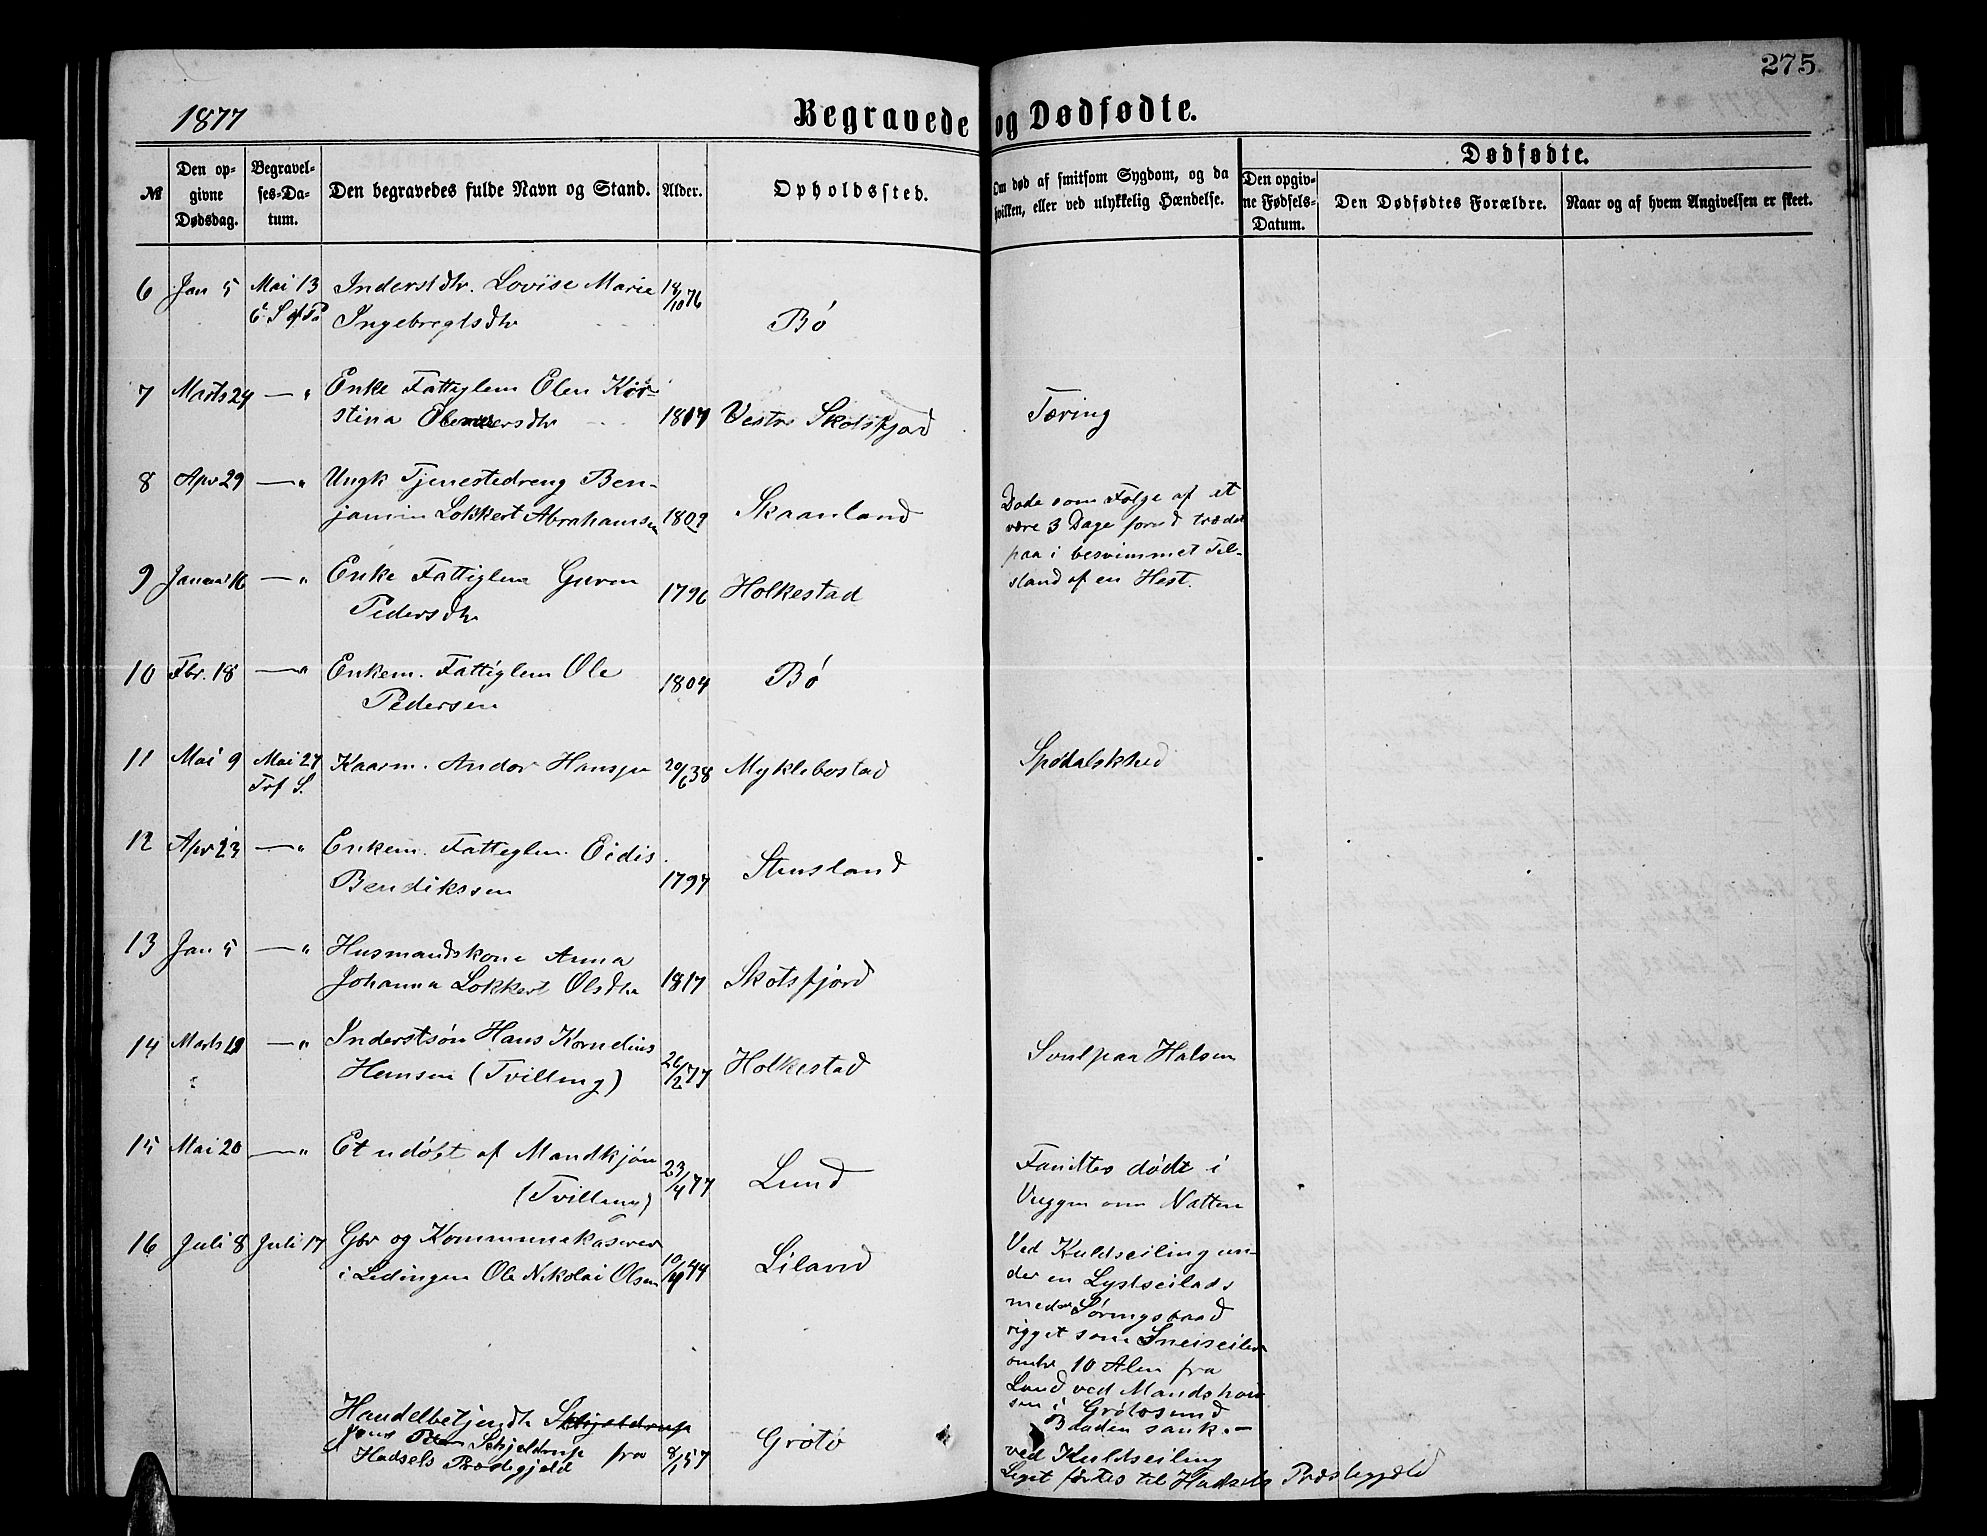 275
1877
Begravede og Dødfødte.
Dødfødte.
№
Den op-
givne
Dødsdag.
Begravel-
ses-Da-
tum.
Den begravedes fulde Navn og Stand.
Alder.
Opholdssted.
Om død af smitsom Sygdom, og da
hvilken, eller ved ulykkelig Hændelse.
Den opgiv-
ne Fødsels-
Datum.
Den Dødfødtes Forældre.
Naar og af hvem Angivelsen er skeet.
6 Jan 5 Mai 13 Inderstdtr. Lovise Marie 18/10 76
6 S ef P
Ingebregtsdtr Bø
7 Marts 24 — " Enke Fattiglem Elen Kir-
stina Ebenersdtr 1807 Vestre Skotsfjord Tæring
8 Apr 29 — " Ungk Tjenestedreng Ben-
jamin Lokkert Abrahamsen 1809 Skaanland
Døde som Følge af et
være 3 Dage forud trædet
paa i besvimmet Til-
stand af en Hest.
9 Januar 16 — " Enke Fattiglem
Pedersdtr 1796 Holkestad
10 Fbr. 18 — " Enkem. Fattiglem Ole
Pedersen 1804 Bø
11 Mai 9 Mai 27 Kaarm. Andor Hansen 20/6 38 Myklebostad Spedalskhed
Trf S.
12 Apr 23 — " Enkem. Fattiglem. Eidis
Bendikssen 1797 Stensland
13 Jan 5 — " Husmandskone Anna
Johanna Lokkert Olsdtr 1817 Skotsfjord
14 Marts 19 — " Inderstsøn Hans Kornelius
Hansen (Tvilling) 26/2 77 Holkestad Svul paa Halsen
15 Mai 20 — " Et udøbt af Mandkjøn
(Tvilling) 23/4 77 Lund
Fandtes dødt i
Vuggen om Natten
16 Juli 8 Juli 17 Gbr og Kommunekaserer
i Lødingen Ole Nikolai Olsen 10/4 44 Liland
Ved Kuldseiling un-
der en Lystseilads
med Søringsbaad
rigget som Sneiseiler
omtr 10 Alen fra
Land ved Mandshau
sen i Grøtøsund
Baaden sank. —
Handelbetjendt Schjeldrup
Jens Peter Schjeldrup fra 8/1 57 Grøtø
Hadsels Præstegjeld
ved Kuldseiling
Liget førtes til Hadsels Præstegjeld